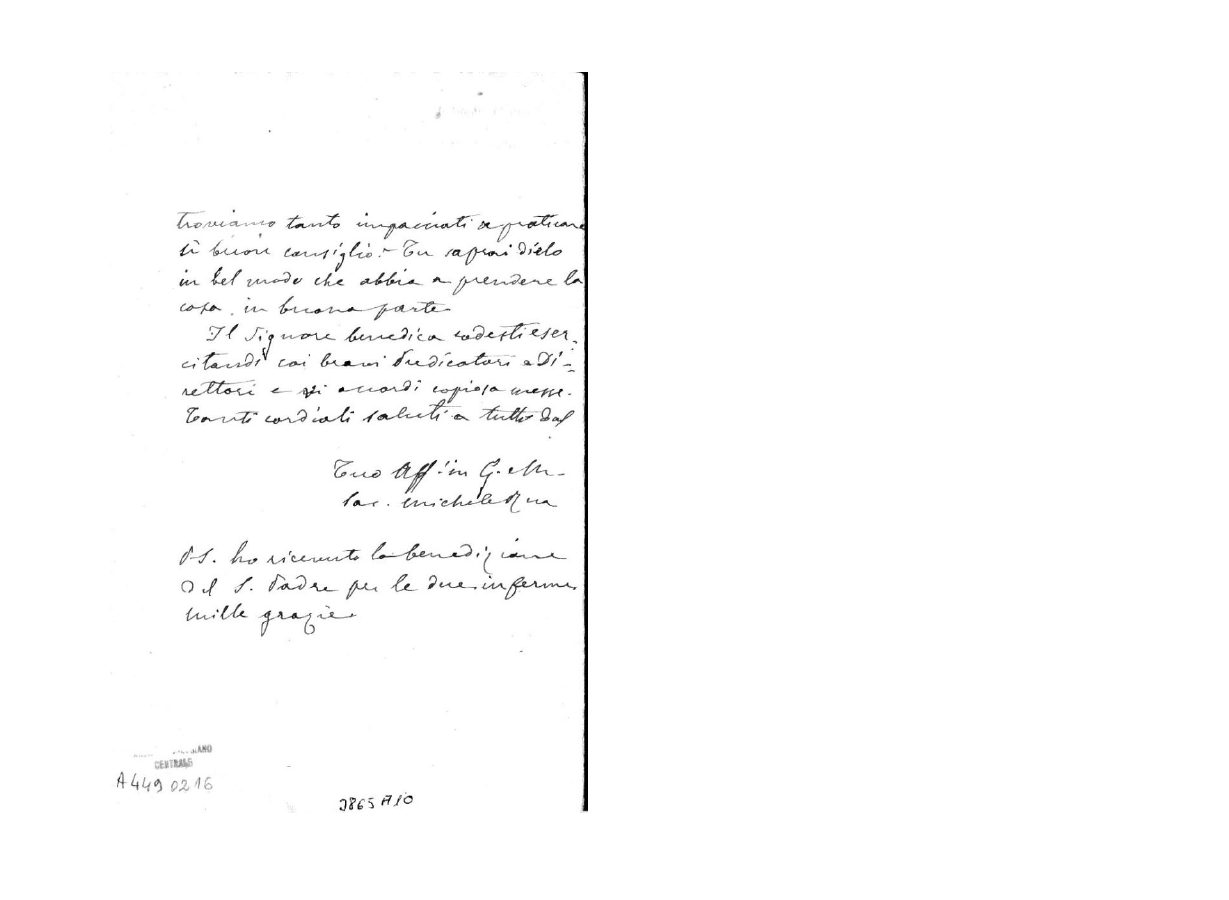 troviamo tanto impacciati a praticare
sì buon consiglio. - Tu saprai dirlo
in bel modo che abbia a prendere la
cosa in buona parte.
Il Signore benedica codesti eser-
citandi coi bravi Predicatori e Di-
rettori e vi accordi copiosa messe.
Tanti cordiali saluti a tutti dal
Tuo Aff.mo in G. e M.
Sac. Michele Rua
PS. ho ricevuto la benedizione
del S. Padre per le due inferme
mille grazie.
CENTRALE
A4490216
3865 A10